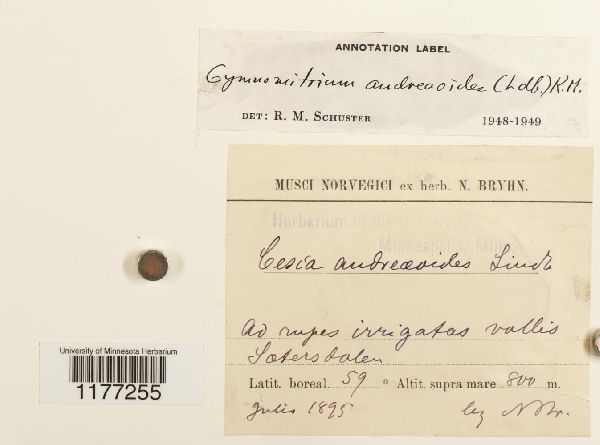 ANNOTATION LABEL
Gymnomitrium andreaoides (Ldb.) K.M.
DET: R. M. SCHUSTER 1948-1949
MUSCI NORVEGICI ex herb. N. BRYHN.
Herbarium of the University
Minneapolis, Minn
Cesia andreæoides Lindb
Ad rupes irrigatas vallis
Sætersdalen
Latit. boreal. 59 ° Altit. supra mare 800 m.
Julio 1895 leg N Br.
University of Minnesota Herbarium
1177255